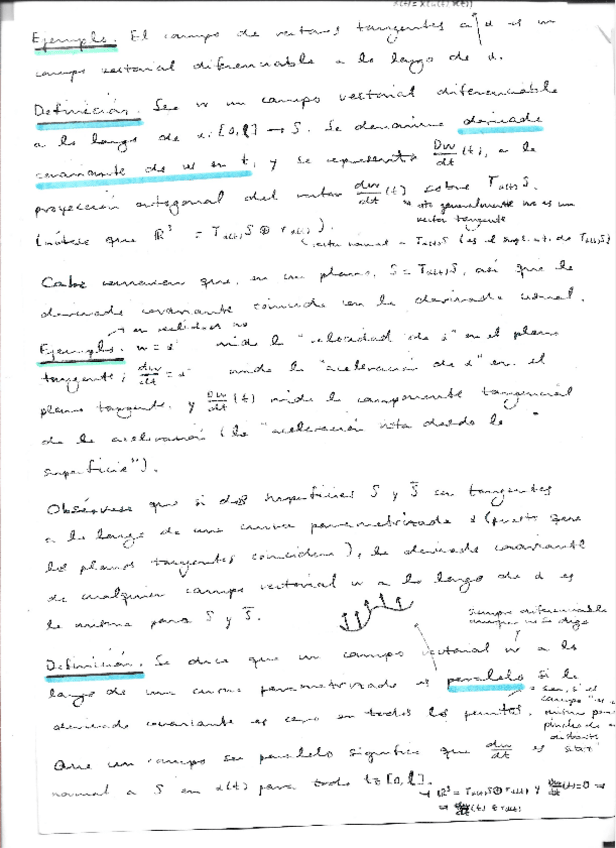 Ejemplo. El campo de vectores tangentes a α es un
campo vectorial diferenciable a lo largo de α.
Definición. Sea w un campo vectorial diferenciable
a lo largo de α: [0,l] → S. Se denomina derivada
covariante de w en t, y se representa Dw/dt (t), a la
proyección ortogonal del vector dw/dt (t) sobre Tα(t)S.
esto generalmente no es un
vector tangente
(nótese que ℝ³ = Tα(t)S ⊕
Cabe remarcar que, en un plano, S = Tα(t)S, así que la
derivada covariante coincide con la derivada usual.
en realidad no
Ejemplo. w = α' mide la "velocidad de α" en el plano
tangente; dw/dt = α'' mide la "aceleración de α" en el
plano tangente y Dw/dt (t) mide la componente tangencial
de la aceleración (la "aceleración vista desde la
superficie").
Obsérvese que si dos superficies S y S̄ son tangentes
a lo largo de una curva parametrizada α (puesto que
los planos tangentes coinciden), la derivada covariante
de cualquier campo vectorial w a lo largo de α es
la misma para S y S̄.
siempre diferenciable
aunque no se diga
Definición. Se dice que un campo vectorial w a lo
largo de una curva parametrizada es paralelo si la
derivada covariante es cero en todos los puntos.
Que un campo sea paralelo significa que dw/dt es
normal a S en α(t) para todo t∈[0,l].